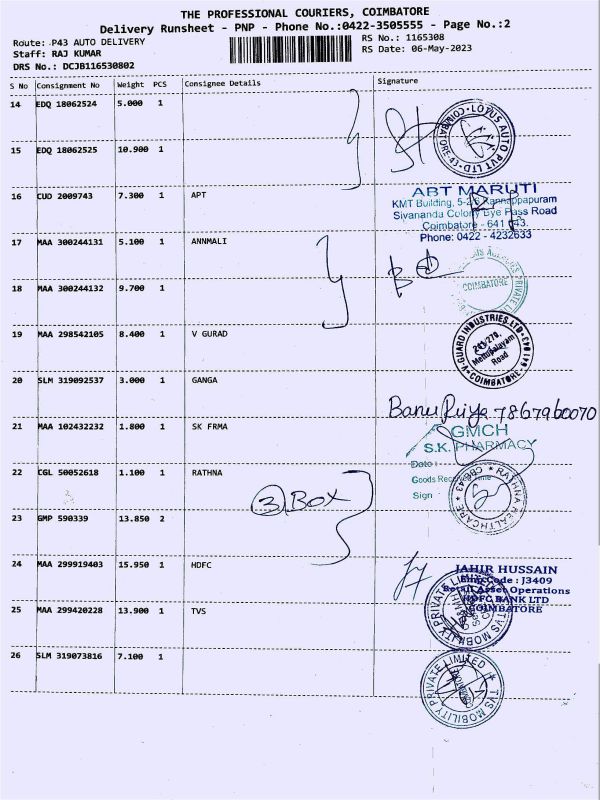 THE PROFESSIONAL COURIERS, COIMBATORE
Delivery Runsheet - PNP - Phone No.:0422-3505555 - Page No.:2
Route: P43 AUTO DELIVERY
RS No.: 1165308
Staff: RAJ KUMAR
RS Date: 06-May-2023
DRS No.: DCJB116530802
S No Consignment No Weight PCS Consignee Details Signature
14 EDQ 18062524 5.000 1
LOTUS AUTO PVT. LTD. COIMBATORE-43
15 EDQ 18062525 10.900 1
16 CUO 2009743 7.300 1 APT
ABT MARUTI
KMT Building, 5-2/6 Kannappapuram
Sivananda Colony Bye Pass Road
Coimbatore - 641 043.
Phone: 0422 - 4232633
17 MAA 300244131 5.100 1 ANNMALI
18 MAA 300244132 9.700 1
COIMBATORE
19 MAA 298542105 8.400 1 V GURAD
GUARD INDUSTRIES LTD
Mettupalayam
Road
COIMBATORE
20 SLM 319092537 3.000 1 GANGA
Banu Riya 7867960070
21 MAA 102432232 1.800 1 SK FRMA
GMCH
S.K. PHARMACY
Date :
Goods Received
Sign
22 CGL 50052618 1.100 1 RATHNA
RATHNA HEALTHCARE
3 Box
23 GMP 590339 13.850 2
24 MAA 299919403 15.950 1 HDFC
JAHIR HUSSAIN
Emp Code : J3409
Retail Asset Operations
HDFC BANK LTD
COIMBATORE
25 MAA 299420228 13.900 1 TVS
TVS MOBILITY PRIVATE LIMITED
26 SLM 319073816 7.100 1
TVS MOBILITY PRIVATE LIMITED